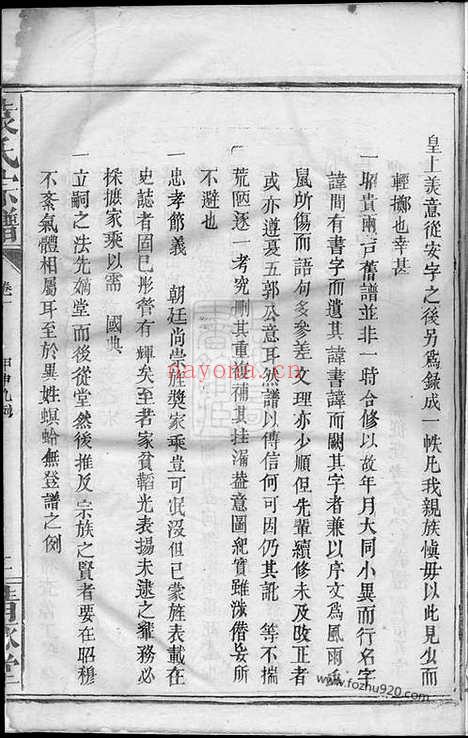 皇上美意從安字之後另爲錄成一帙凡我親族愼毋以此見少而
輕擲也幸甚
一昭貴兩戸舊譜並非一時合修以故年月大同小異而行名字
諱間有書字而遺其諱書諱而闕其字者兼以序文爲風雨
鼠所傷而語句多參差文理亦少順但先輩續修未及改正者
或亦遵夏五郭公意耳然譜以傳信何可因仍其訛 等不揣
荒陋逐一考究刪其重複補其挂漏葢意圖紀實雖潑僭妄所
不避也
一忠孝節義 朝廷尚崇旌奬家乘豈可氓沒但已蒙旌表載在
史誌者固巳彤管有輝矣至若家貧韜光表揚未逮之輩務必
採摭家乘以需 國典
一立嗣之法先嫡堂而後從堂然後推及宗族之賢者要在昭穆
不紊氣體相屬耳至於異姓螟蛉無登譜之例
袁氏宗譜
卷一
dayona.cn
www.fozhu920.com